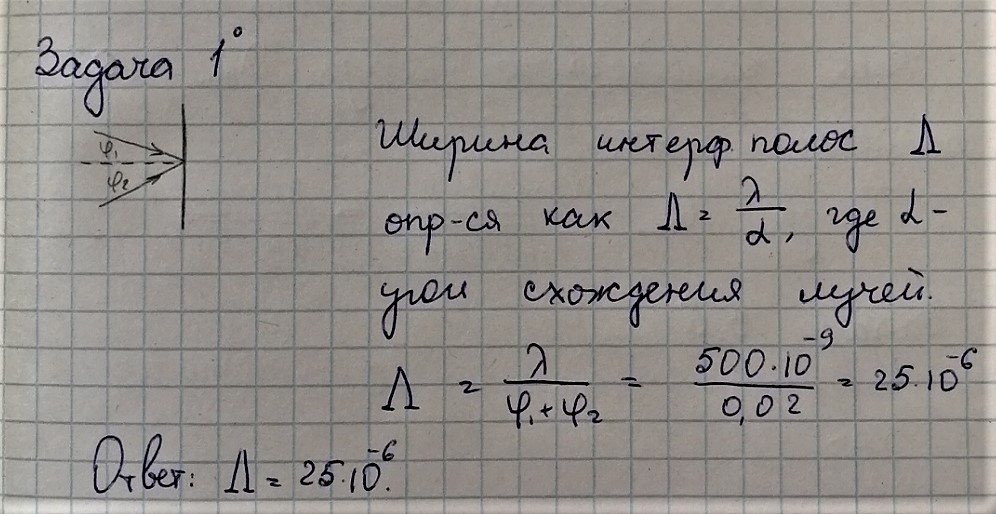 Задача 1°
φ₁
φ₂
Ширина интерф. полос Λ
опр-ся как Λ = λ/α, где α -
угол схождения лучей.
Λ = λ/(φ₁+φ₂) = 500·10⁻⁹/0,02 = 25·10⁻⁶
Ответ: Λ = 25·10⁻⁶.